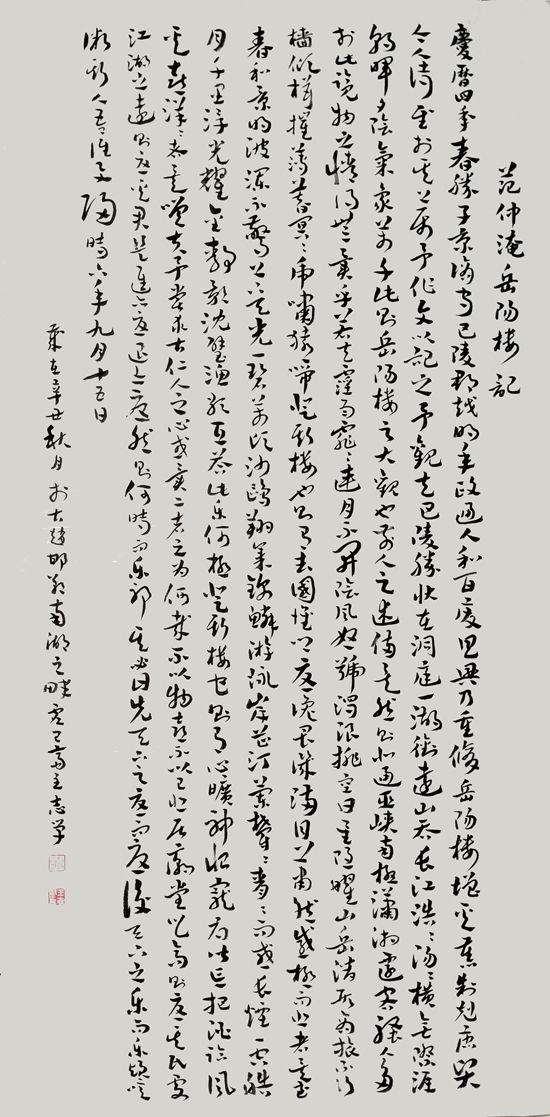 范仲淹岳陽樓記
慶曆四年春滕子京謫守巴陵郡越明年政通人和百廢具興乃重修岳陽樓增其舊制刻唐賢
今人詩賦於其上屬予作文以記之予觀夫巴陵勝狀在洞庭一湖銜遠山吞長江浩々湯々橫無際涯
朝暉夕陰氣象萬千此則岳陽樓之大觀也前人之述備矣然則北通巫峽南極瀟湘遷客騷人多
於此覽物之情得無異乎若夫霪雨霏々連月不開陰風怒號濁浪排空日星隱曜山岳潛形商旅不行
檣傾楫摧薄暮冥々虎嘯猿啼登斯樓也則有去國懷鄉憂讒畏譏滿目蕭然感極而悲者矣至
春和景明波瀾不驚上下天光一碧萬頃沙鷗翔集錦鱗游泳岸芷汀蘭郁々青々而或長煙一空皓
月千里浮光耀金靜影沈璧漁歌互答此樂何極登斯樓也則有心曠神怡寵辱偕忘把酒臨風
其喜洋々者矣嗟夫予嘗求古仁人之心或異二者之為何哉不以物喜不以己悲居廟堂之高則憂其民處
江湖之遠則憂其君是進亦憂退亦憂然則何時而樂耶其必曰先天下之憂而憂後天下之樂而樂歟噫
微斯人吾誰與歸時六年九月十五日
歲在辛丑秋月於古趙邯鄲南湖之畔齋主志學